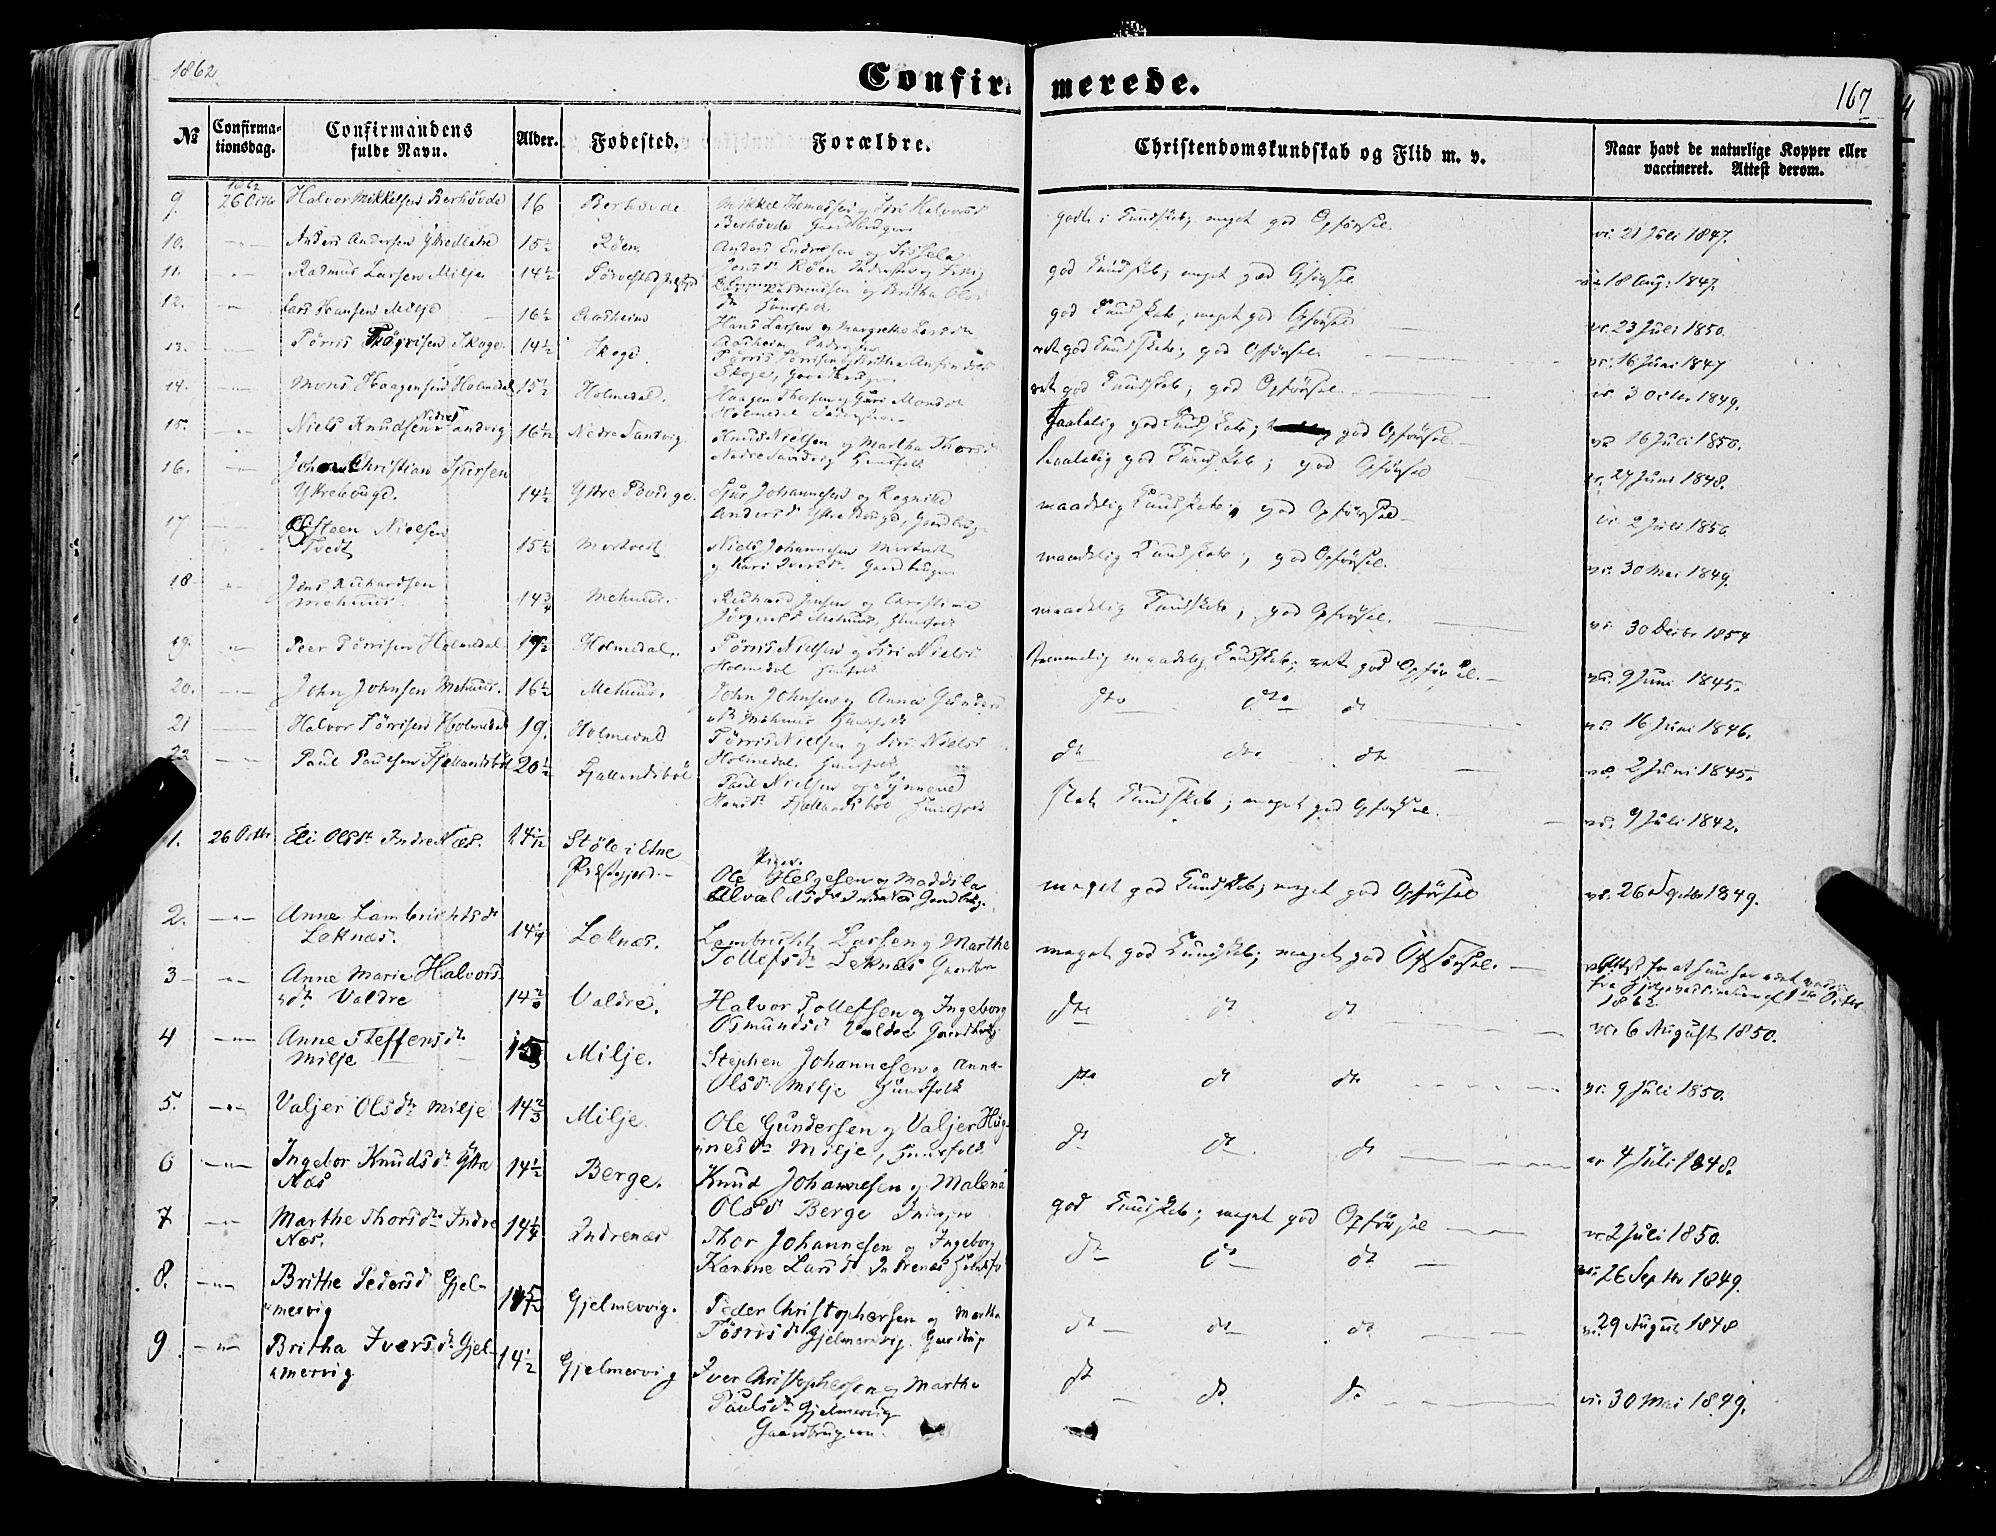 1862
Confirmerede.
167
№
Confirma-
tionsdag.
Confirmandens
fulde Navn.
Alder.
Fødested.
Forældre.
Christendomskundskab og Flid m. v.
Naar havt de naturlige Kopper eller
vaccineret. Attest derom.
9. 1862 26 Octbr Halvor Mikkelsen Berhøvde 16 Berhøvde Mikkel Thomassen og Siri Halvorsd
Berhøvde Gaardbruger
godt i Kundskab; meget god Opførsel. vc. 21 Juli 1847.
10. Anders Andersen 15½ Røen Anders Endresen og Sissela
god Kundskab; meget god Opførsel vc 18 Aug: 1847.
11. Rasmus Larsen Milje 14½ Rasmussen og Britha Olsd
god Kundskab; meget god Opførsel vc. 23 Juli 1850.
12. Lars Hansen Milje 16½ Aasheim Hans Larsen og Margrethe Larsdr
Aasheim
ret god Kundskab; god Opførsel. vc. 16 Juni 1847
13. Tørris Skoge 14½ Skoge. Tørris Tørrisen og Britha
Skoge, Gaardbruger
ret god Kundskab; god Opførsel vc. 3 Octbr 1849.
14. Mons Haagensen Holmedal 15½ Holmedal. Haagen og Guri Monsdr
Holmedal
god Kundskab; god Opførsel vc 16 Juli 1850.
15. Niels Knudsen Nedre Sandvig 16½ Nedre Sandvig. Knud Nielsen og Martha Thorsd
Nedre Sandvig Huusfolk
god Kundskab; god Opførsel vc. 27 Juni 1848.
16. Johan Christian Sjursen
Ytrebouge. 14½ Ytre Bouge. Sjur Johannesen og Ragnild
Andersd Ytre Bouge, Gaardbrug
maadelig Kundskab; god Opførsel vc. 2 Juli 1850
17 Østeen Nielsen
Tvedt 15½ Mortvedt Niels Johannesen Mortvedt
og Kari Iversdr Gaardbruger
maadelig Kundskab; god Opførsel. vc. 30 Mai 1849.
18. Jens Richardsen
Mehuus. 14¾ Mehuus. Richard Jensen og Christiane
Jørgensd Mehuus, Huusfolk
maadelig Kundskab; god Opførsel. vc. 30 1854
19. Peer Tørrisen Holmedal Holmedal. Tørris Nielsen og Siri Nielsd
Holmedal Huusfolk
temmelig maadelig Kundskab; ret god Opførsel. vc. 9 Juni 1845.
20. John Johnsen Mehuus. 16½ Mehuus. John Johnsen og Anna Gundersd
Mehuus Huusfolk
dto dto dt vc. 16 Juni 1846.
21 Halvor Tørrisen Holmedal 19. Holmedal Tørris Nielsen og Siri Nielsd
Holmedal. Huusfolk
dt dto dt vc. 2 Juni 1845.
22 Paul Paulsen Fjellandsbøl 20½ Fjallandsbøl Paul Nielsen og Synneve
Hansdr Fjellandsbøl Huusfolk
slet Kundskab; meget god Opførsel. vc. 9 Juli 1842.
Piger.
1. 26 Octbr Eli Olsdr Indre Næs. Støle i Etne
Præstegjeld. Ole Helgesen og Maddila
Gaardbrug.
meget god Kundskab; meget god Opførsel vc. 26 Septbr 1849.
2. Anne Lambrichtsdr
Leknæs. 14 Leknæs. Lambricht Larsen og Marthe
Tollefsdr Leknæs
meget god Kundskab; meget god Opførsel.
1ste Octbr
1862.
3 Anne Marie Halvors
dr Valdre 14 Valdre. Halvor Tollefsen og Ingeborg
Osmundsd Valdre Gaardbrug
dto dt dt vc. 6 August 1850.
4 Anne Steffensdr
Milje 15 Milje. Stephen Johannesen og Anna
Olsdr Milje Huusfolk
dto dt dto vc. 9 Juli 1850.
5. Valjer Olsdr Milje 14⅔ Milje. Ole Gundersen og Valjer
Milje, Huusfolk
dt dt dt vc 4 Juli 1848.
6 Ingebor Knudsdr Ytre
Næs 14½ Berge. Knud Johannesen og Malena
Olsd Berge
god Kundskab; meget god Opførsel vc 2 Juli 1850.
7 Marthe Thorsdr Indre
Næs. 14¼ Indrenæs Thor Johannesen og Ingeborg
Karine Larsd Indrenæs
dt dt dt vc. 26 Septbr 1849.
8. Brithe Pedersd Gjel-
mervig Gjelmervig. Peder Christophersen og Martha
Tørrisdr Gjelmervig.
dt dt dt vc. 29 August 1848
9 Britha Iversdr Gjel-
mervig 14½ Gjelmervig Iver Christophersen og Martha
Paulsdr Gjelmervig
Gaardbrugere.
dt dt dt vc. 30 Mai 1849.